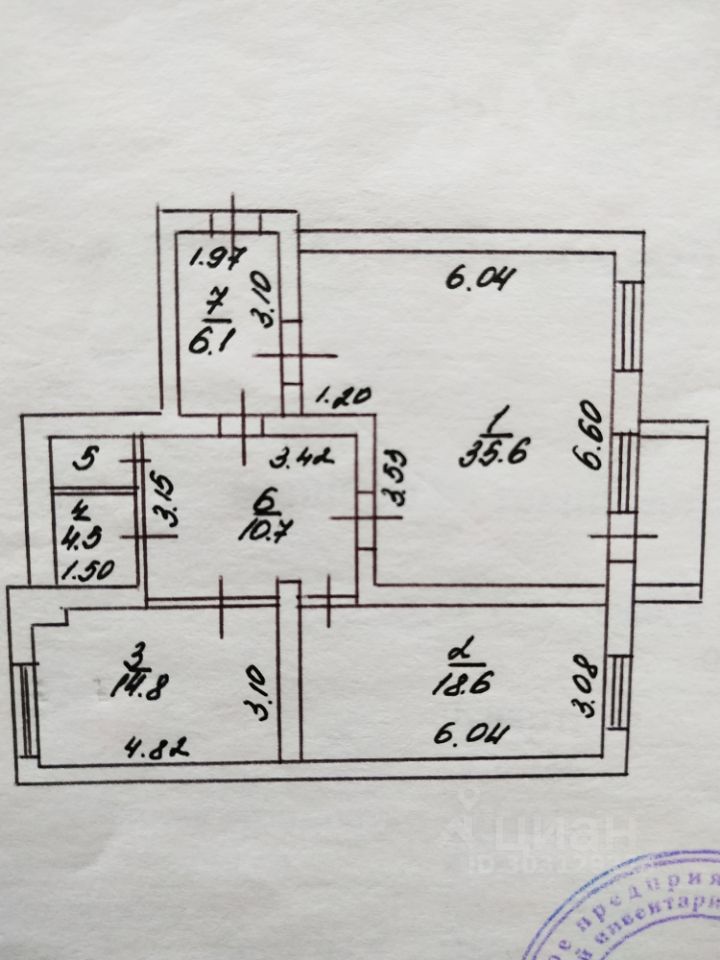 1.97
7
6.1
3.10
6.04
1.20
1
35.6
6.60
5
3.42
3.53
3.15
4
4.5
1.50
6
10.7
3
14.8
3.10
4.82
2
18.6
3.08
6.04
циан
предприя
инвентари